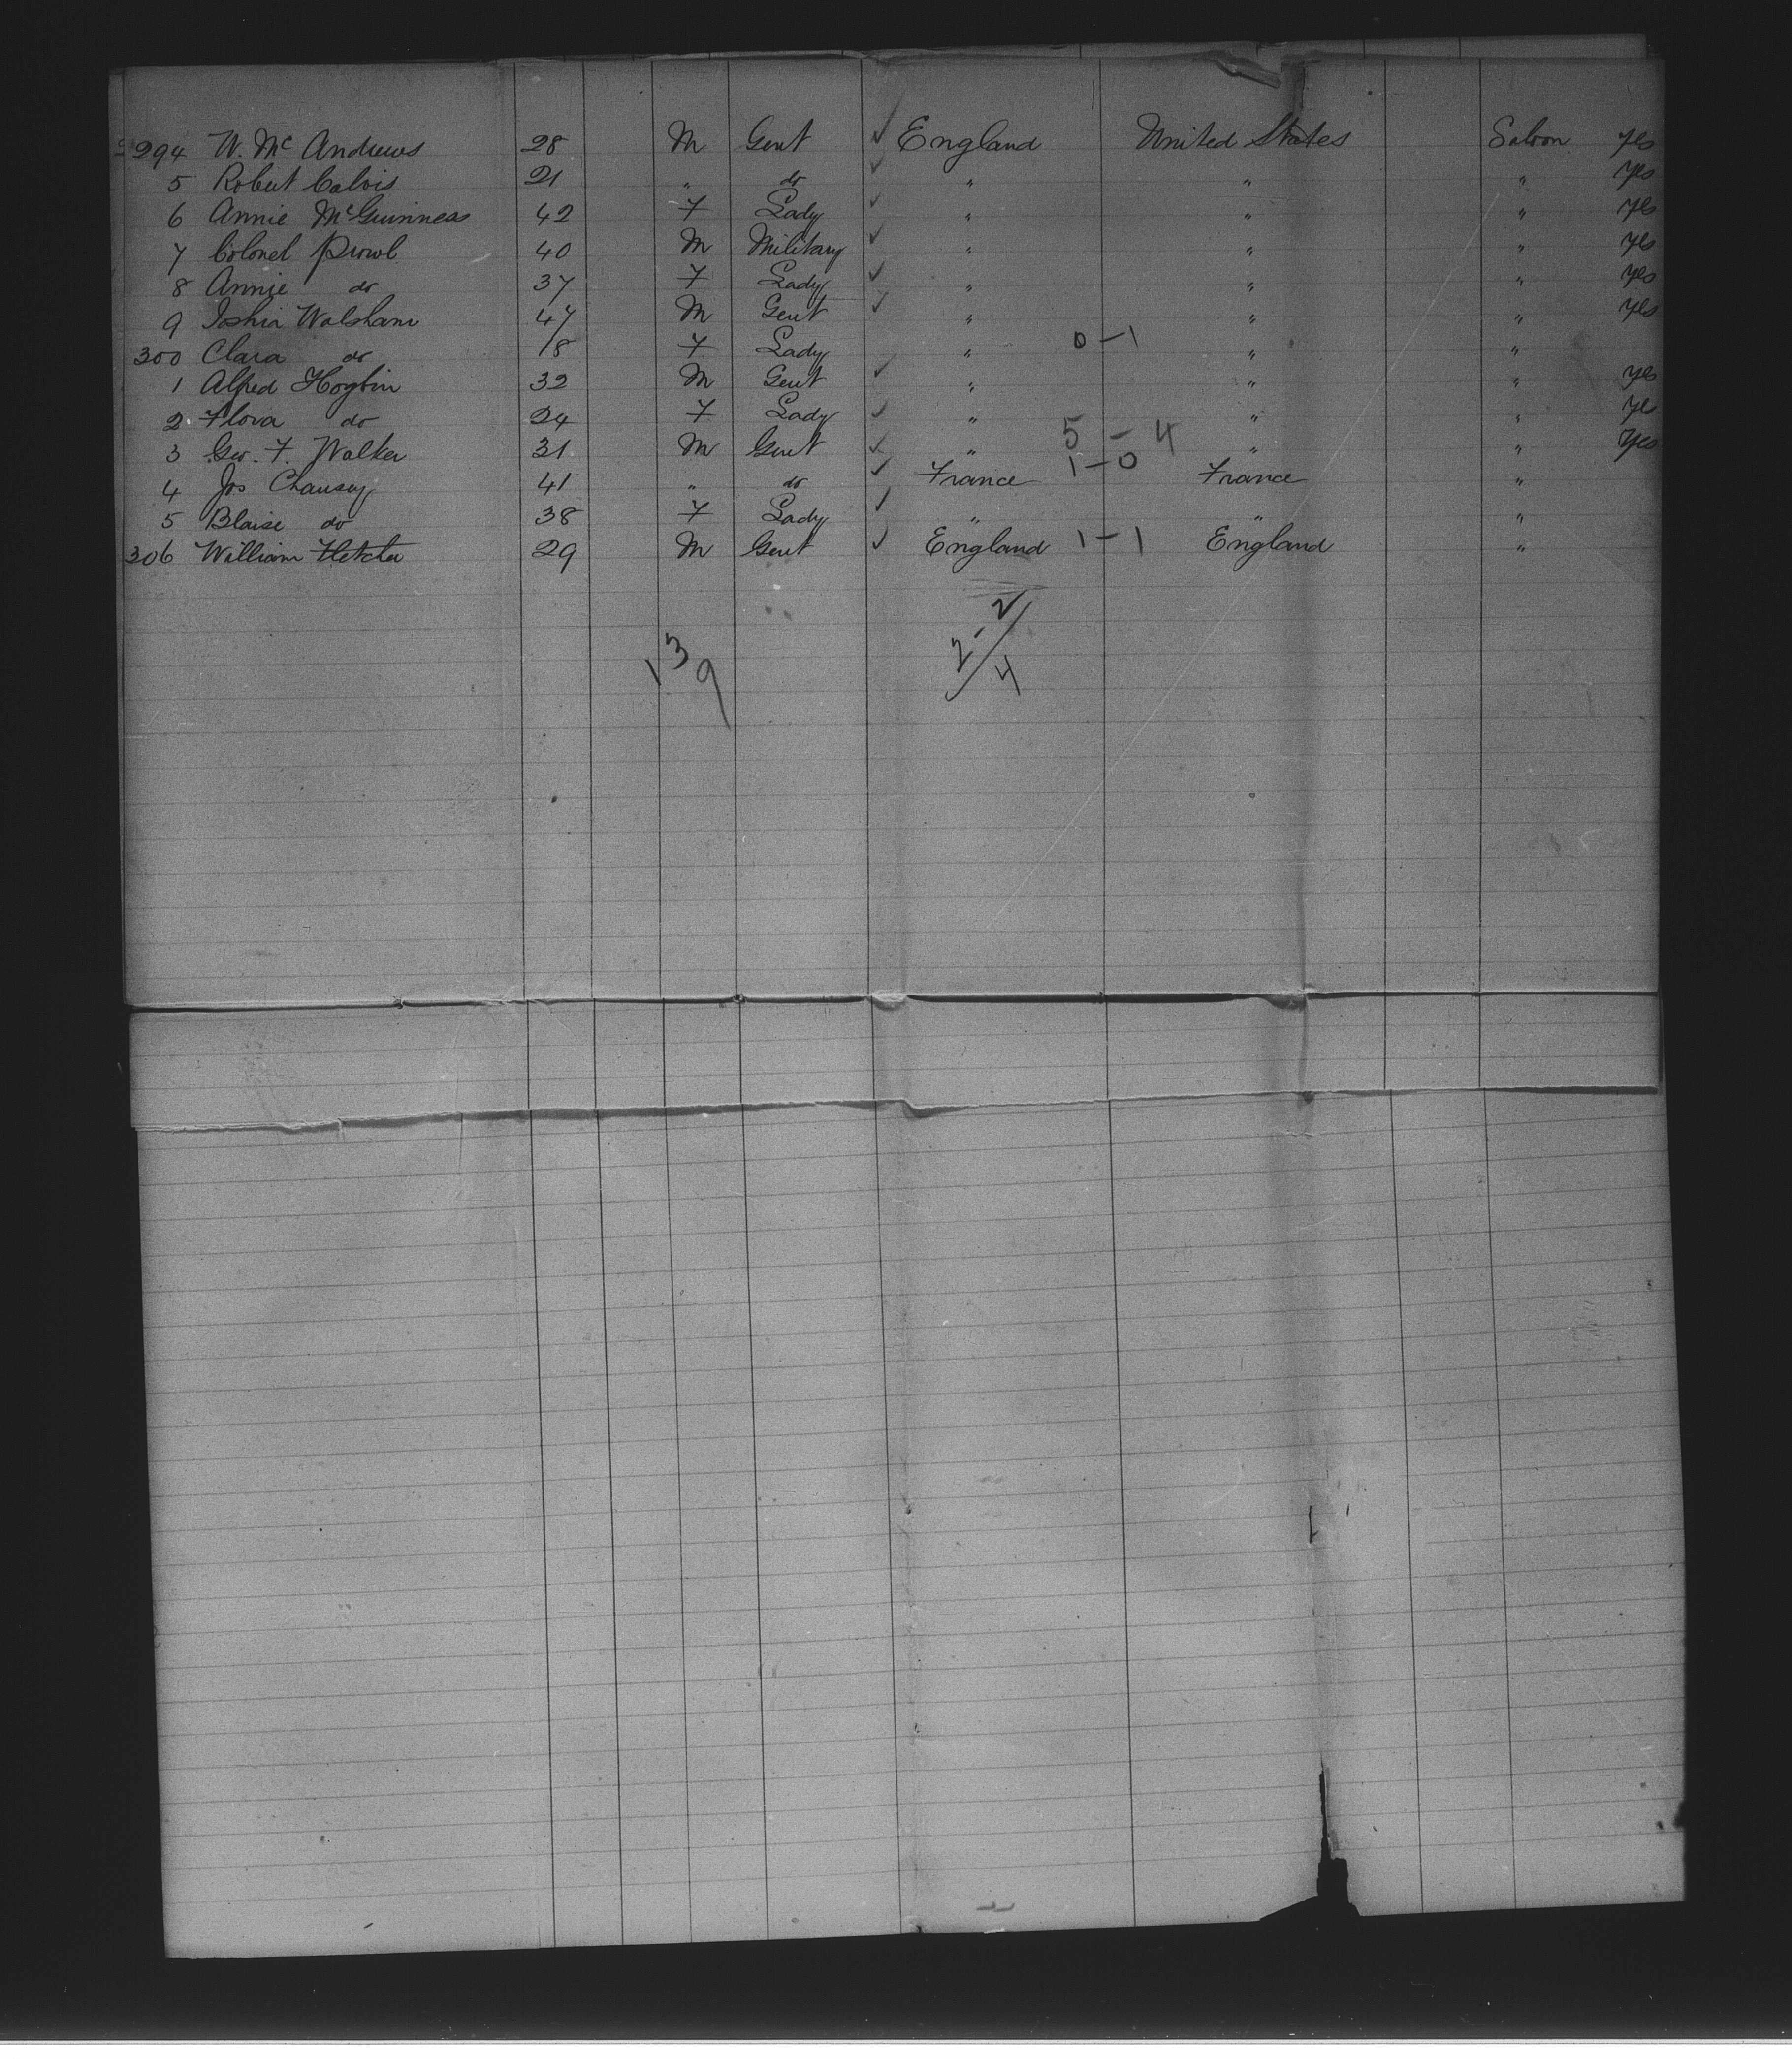 294 W. Mc Andrews 28 M Gent ✓ England United States Saloon yes
5 Robert Calvis 21 " do ✓ " " " yes
6 Annie McGuinness 42 F Lady ✓ " " " yes
7 Colonel Prowl 40 M Military ✓ " " " yes
8 Annie do 37 F Lady ✓ " " " yes
9 Walsham 47 M Gent ✓ " " " yes
300 Clara do 18 F Lady " 0-1 " "
1 Alfred Hogbin 32 M Gent ✓ " " " yes
2 Flora do 24 F Lady ✓ " " " yes
3 Geo. F. Walker 31 M Gent ✓ " 5-4 " " yes
4 Jos Chausey 41 " do ✓ France 1-0 France "
5 Blaise do 38 F Lady ✓ " " "
306 William Fletcher 29 M Gent ✓ England 1-1 England "
2-2/4
139